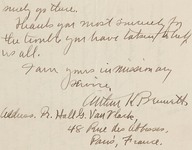 ly go there.
Thanks you most sincerely for
the trouble you have taken to help
us all.
I am yours in missionary
service,
Arthur K.
Address. Hall G. Van Vlack,
48 Rue des Abbesses,
Paris, France.